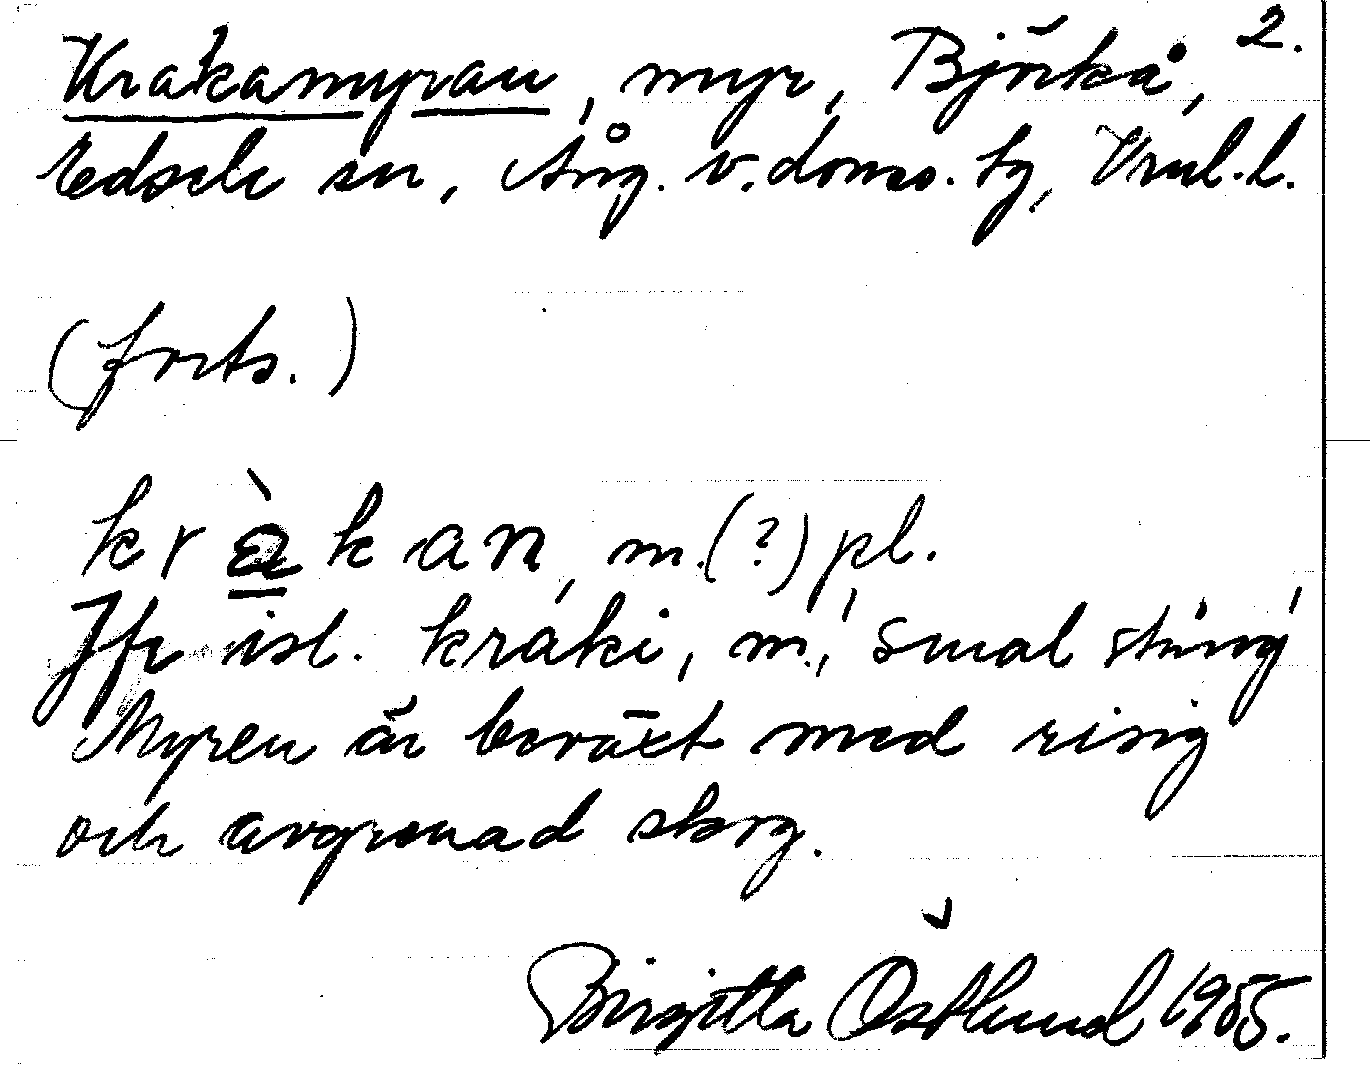 2.
Krakamyran, myr, Björkå,
Edsele sn, Ång. v. doms. tg, Vnl. l.
(forts.)
kràkan, m.(?) pl.
Jfr isl. kraki, m., 'smal stång'
Myren är beväxt med risig
och avgrenad skog.
Birgitta Östlund 1955.